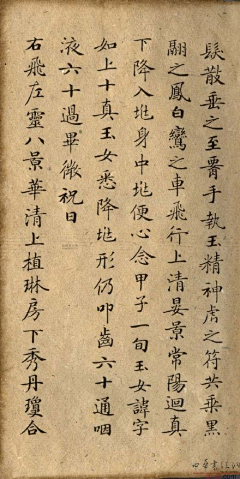 髮散垂之至腰手執玉精神虎之符共乘黑
翮之鳳白鸞之車飛行上清晏景常陽迴真
下降入兆身中兆便心念甲子一旬玉女諱字
如上十真玉女悉降兆形仍叩齒六十通咽
液六十過畢微祝曰
右飛左靈八景華清上植琳房下秀丹瓊合